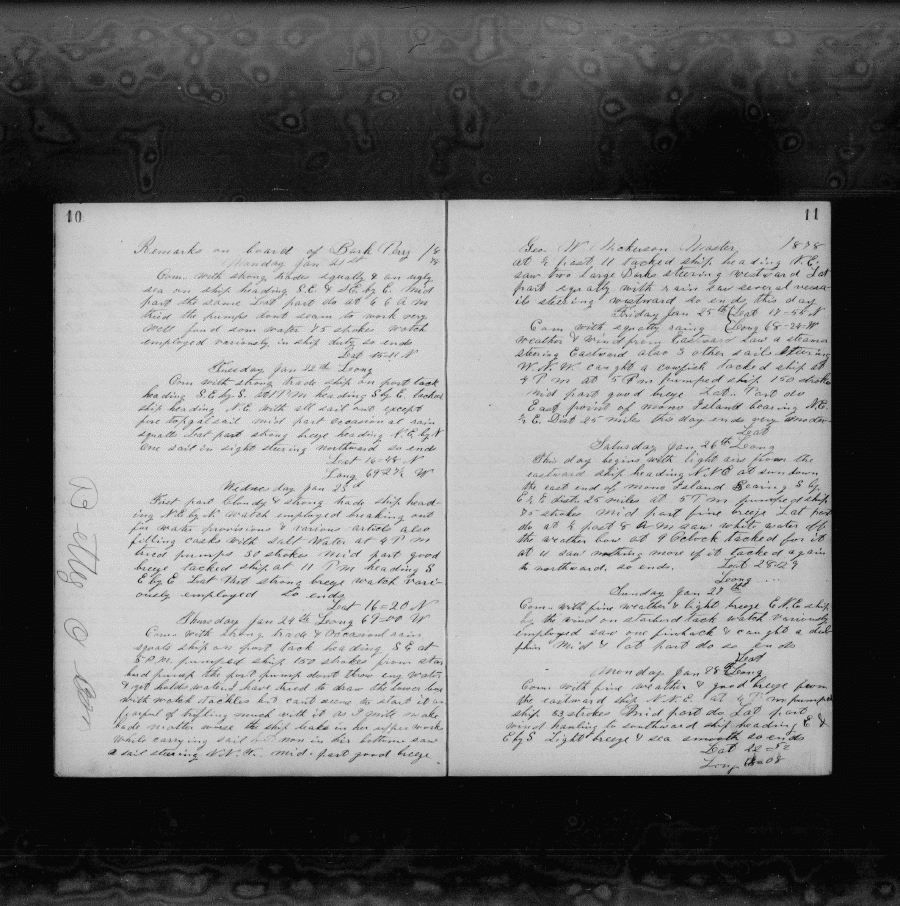 10
Remarks on board of Bark Perry 18 78
Monday Jan 21st
Com. with strong trades squally & an ugly
sea on ship heading S.E. & S.E. by E. Mid
part the same Last part do at 6 A m
tried the pumps dont seam to work very
well fund som water 75 strokes watch
employed variously in ship duty so ends
Lat 15-11 N
Tuesday Jan 22th Long
Com with strong trade ship on port tack
heading S.E. by S. at 1 P M heading S by E. tacked
ship heading N.E. with all sail out except
fore topgalsail mid part occasional rain
squalls Last part strong breeze heading N.E. by N
One sail in sight steering northward so ends
Lat 16-48 N
Long 69-27½ W
Wednesday Jan 23d
First part Cloudy & strong trade ship head-
ing N.E. by N. watch employed breaking out
for water provisions & various articles also
filling casks with salt water at 4 P M
tried pumps 30 strokes mid part good
breeze tacked ship at 11 P M heading S
E by E Last Part strong breeze watch vari-
ously employed so ends
Lat 16=20 N
Thursday Jan 24th Long 69=00 W
Com. with strong trade & occasional rain
squals ship on port tack heading S.E. at
5 P.M. pumped ship 150 strokes from star
bord pump the port pump dont throw eny water
& yet holds water I have tried to draw the lower box
with watch tackles but cant seem to start it am
fearful of trifling much with it as I might make
bad matter worse the ship leaks in her upper work
while carrying sail non in her bottom saw
a sail steering W.N.W. mid part good breeze
11
Geo W. Nickerson Master 1878
at ½ past 11 tacked ship heading N.E.
saw two large Barks steering westward Last
part squally with rain saw several vessa-
ils steering westward so ends this day
Friday Jan 25th Lat 17-52 N
Com with squally raing Long 68-24 W
weather & wind from Eastward saw a steam
steering Eastward also 3 other sails steering
W.N.W. caught a cowfish tacked ship at
4 P m at 5 P m pumped ship 150 stroks
mid part good breze Last Part do
East point of mono Island bearing N.E.
& E. Dist 25 miles this day ends very moder
Lat
Saturday Jan 26th Long
This day begins with light airs from the
eastward ship heading N.N.E at sundown
the east end of mono Island Bearing S by
E ½ E dist. 25 miles at 5 P m pumped ship
75 strokes mid part fine breeze Last part
do at ½ past 8 A m saw white water off
the weather bow at 9 Oclock tacked for it
at 11 saw nothing more of it tacked again
to northward. so ends. Lat 28-29
Leong ....
Sunday Jan 27th
Com. with fine weather & light breeze E.N.E ship
by the wind on starbord tack watch variously
employed saw one finback & caught a dol
phin Mid & lat part do so ends
Lat
Monday Jan 28th Long
Com with fine weather & good breeze from
the eastward ship N.N.E. at 4 P m pumped
ship strokes mid part do Lat part
wind hauling to southward ship heading E &
E by S. Light breeze & sea smooth so ends
Lat 22=52
Long =08